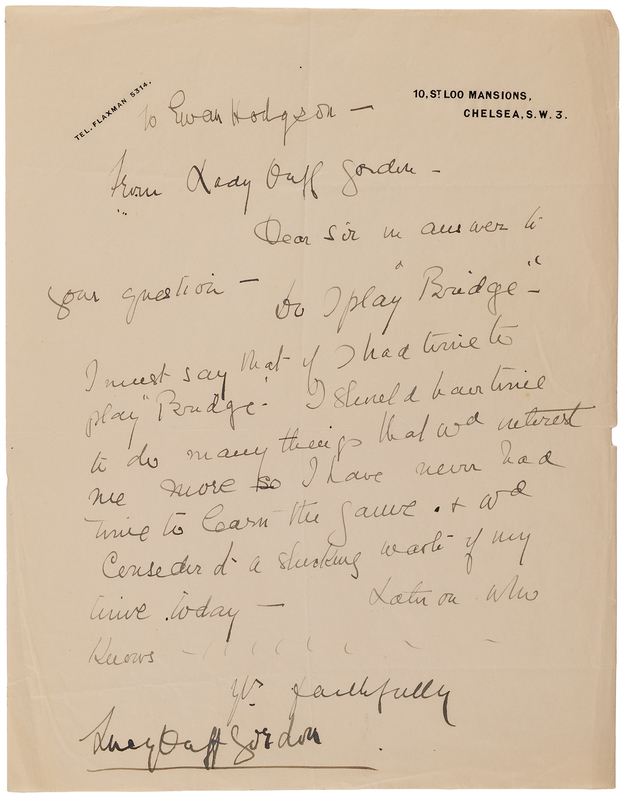 TEL. FLAXMAN 5314.
10, ST LOO MANSIONS,
CHELSEA, S.W. 3.
To Ewan Hodgson —
From Lady Duff Gordon —
Dear Sir in answer to
your question —
Do I play "Bridge" —
I must say that if I had time to
play "Bridge" I should have time
to do many things that wd interest
me more so I have never had
time to learn the game . & wd
consider it a shocking waste of my
time today — Later on who
knows — — —
Yrs faithfully
Lucy Duff Gordon